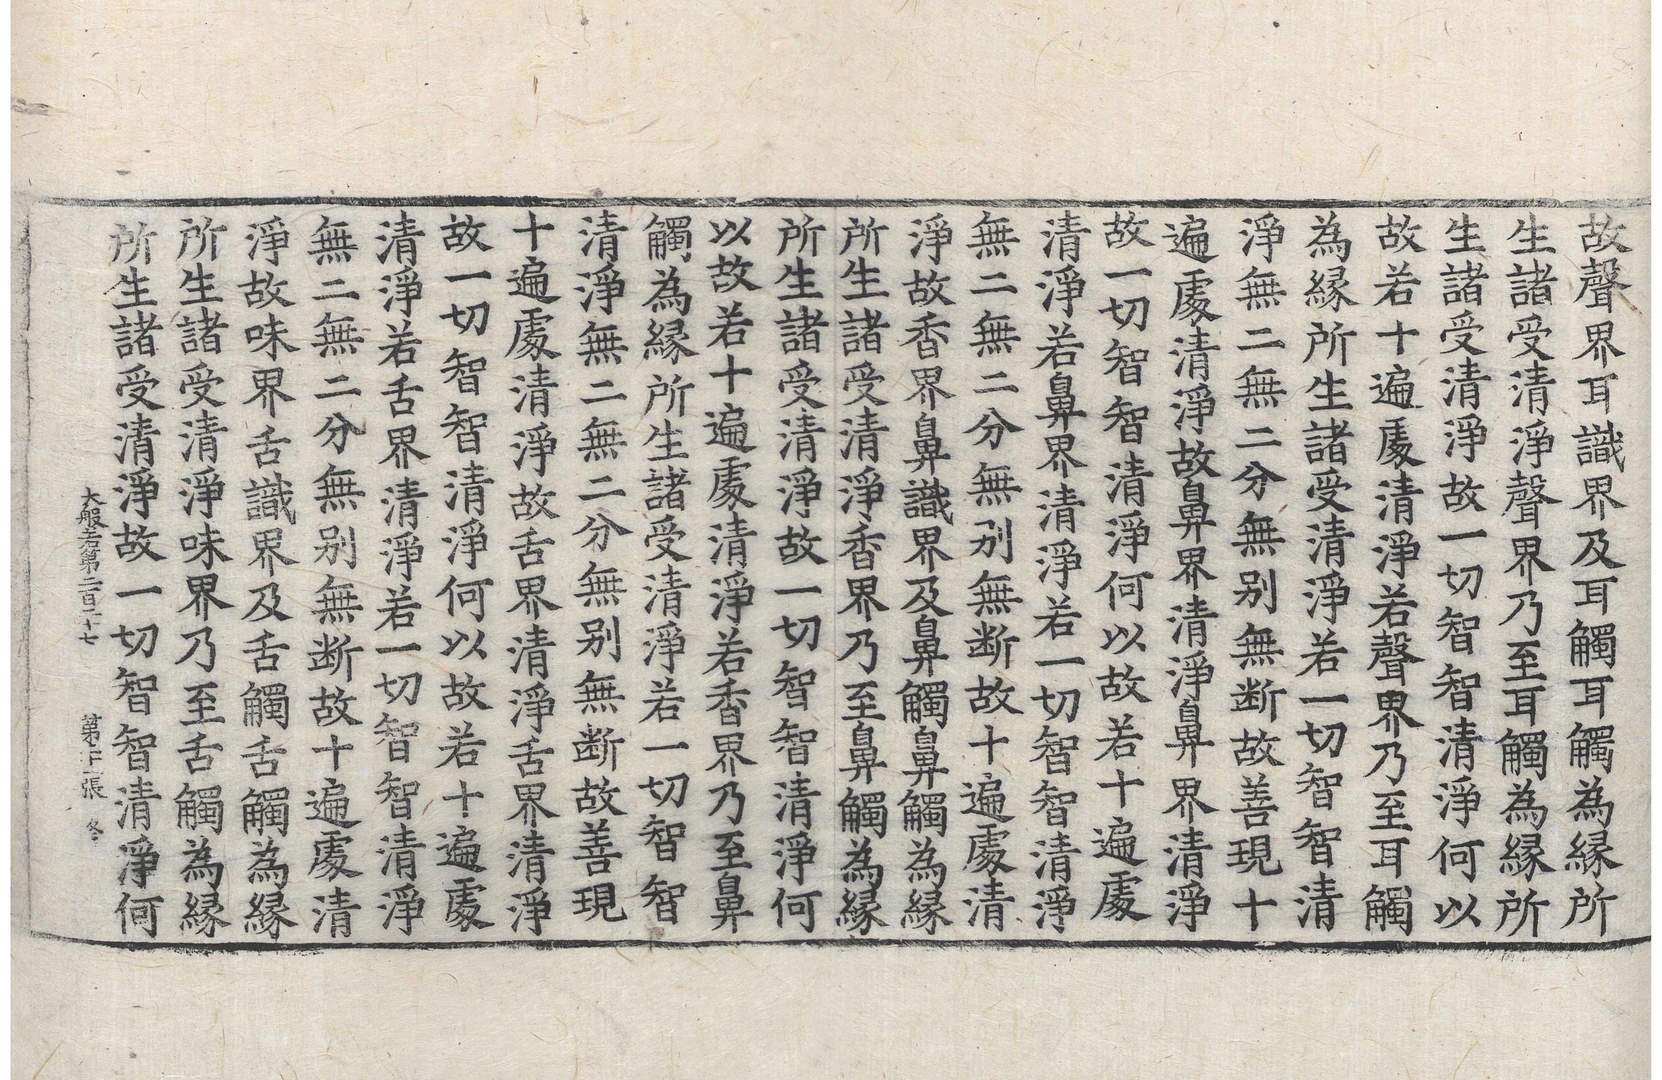 故聲界耳識界及耳觸耳觸為縁所
生諸受清淨聲界乃至耳觸為縁所
生諸受清淨故一切智智清淨何以
故若十遍處清淨若聲界乃至耳觸
為縁所生諸受清淨若一切智智清
淨無二無二分無别無断故善現十
遍處清淨故鼻界清淨鼻界清淨
故一切智智清淨何以故若十遍處
清淨若鼻界清淨若一切智智清淨
無二無二分無别無断故十遍處清
淨故香界鼻識界及鼻觸鼻觸為縁
所生諸受清淨香界乃至鼻觸為縁
所生諸受清淨故一切智智清淨何
以故若十遍處清淨若香界乃至鼻
觸為縁所生諸受清淨若一切智智
清淨無二無二分無别無断故善現
十遍處清淨故舌界清淨舌界清淨
故一切智智清淨何以故若十遍處
清淨若舌界清淨若一切智智清淨
無二無二分無别無断故十遍處清
淨故味界舌識界及舌觸舌觸為縁
所生諸受清淨味界乃至舌觸為縁
所生諸受清淨故一切智智清淨何
大般若第二百二十七 第十二張 冬